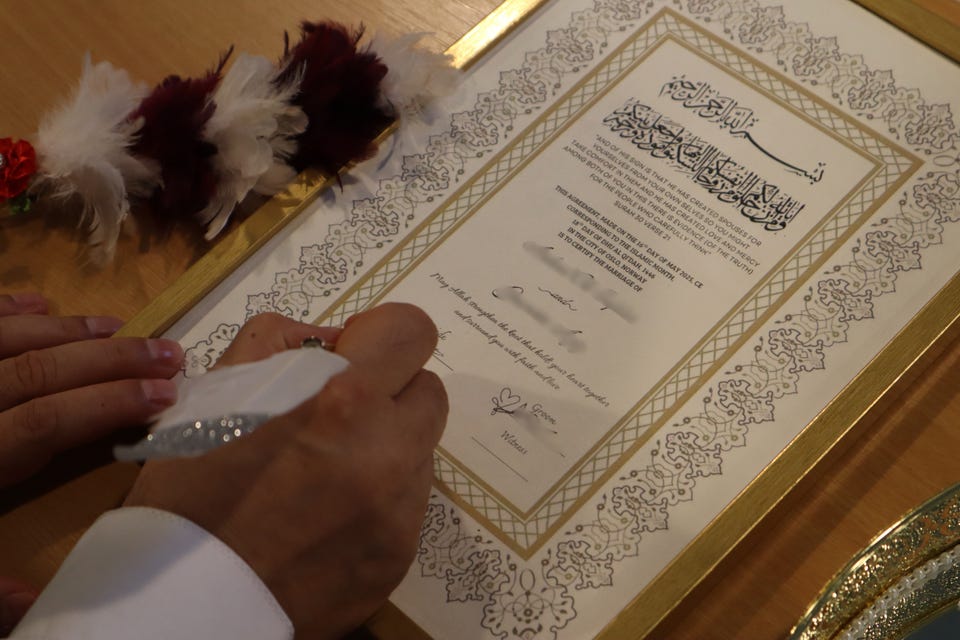 بسم الله الرحمن الرحيم
"AND OF HIS SIGN IS THAT HE HAS CREATED SPOUSES FOR
YOURSELVES FROM YOUR OWN SELVES SO YOU MIGHT
TAKE COMFORT IN THEM AND HE HAS CREATED LOVE AND MERCY
AMONG BOTH OF YOU IN THIS THERE IS EVIDENCE (OF THE TRUTH)
FOR THE PEOPLE WHO CAREFULLY THINK"
SURAH 30 VERSE 21
THIS AGREEMENT, MADE ON THE 16TH DAY OF MAY 2025, CE
CORRESPONDING TO THE ISLAMIC MONTH,
18TH DAY OF DHU AL QI'DAH, 1446
IN THE CITY OF OSLO, NORWAY
IS TO CERTIFY THE MARRIAGE OF
and
May Allah strengthen the bond that holds your heart together
and surround you with faith and love
Groom
Witness